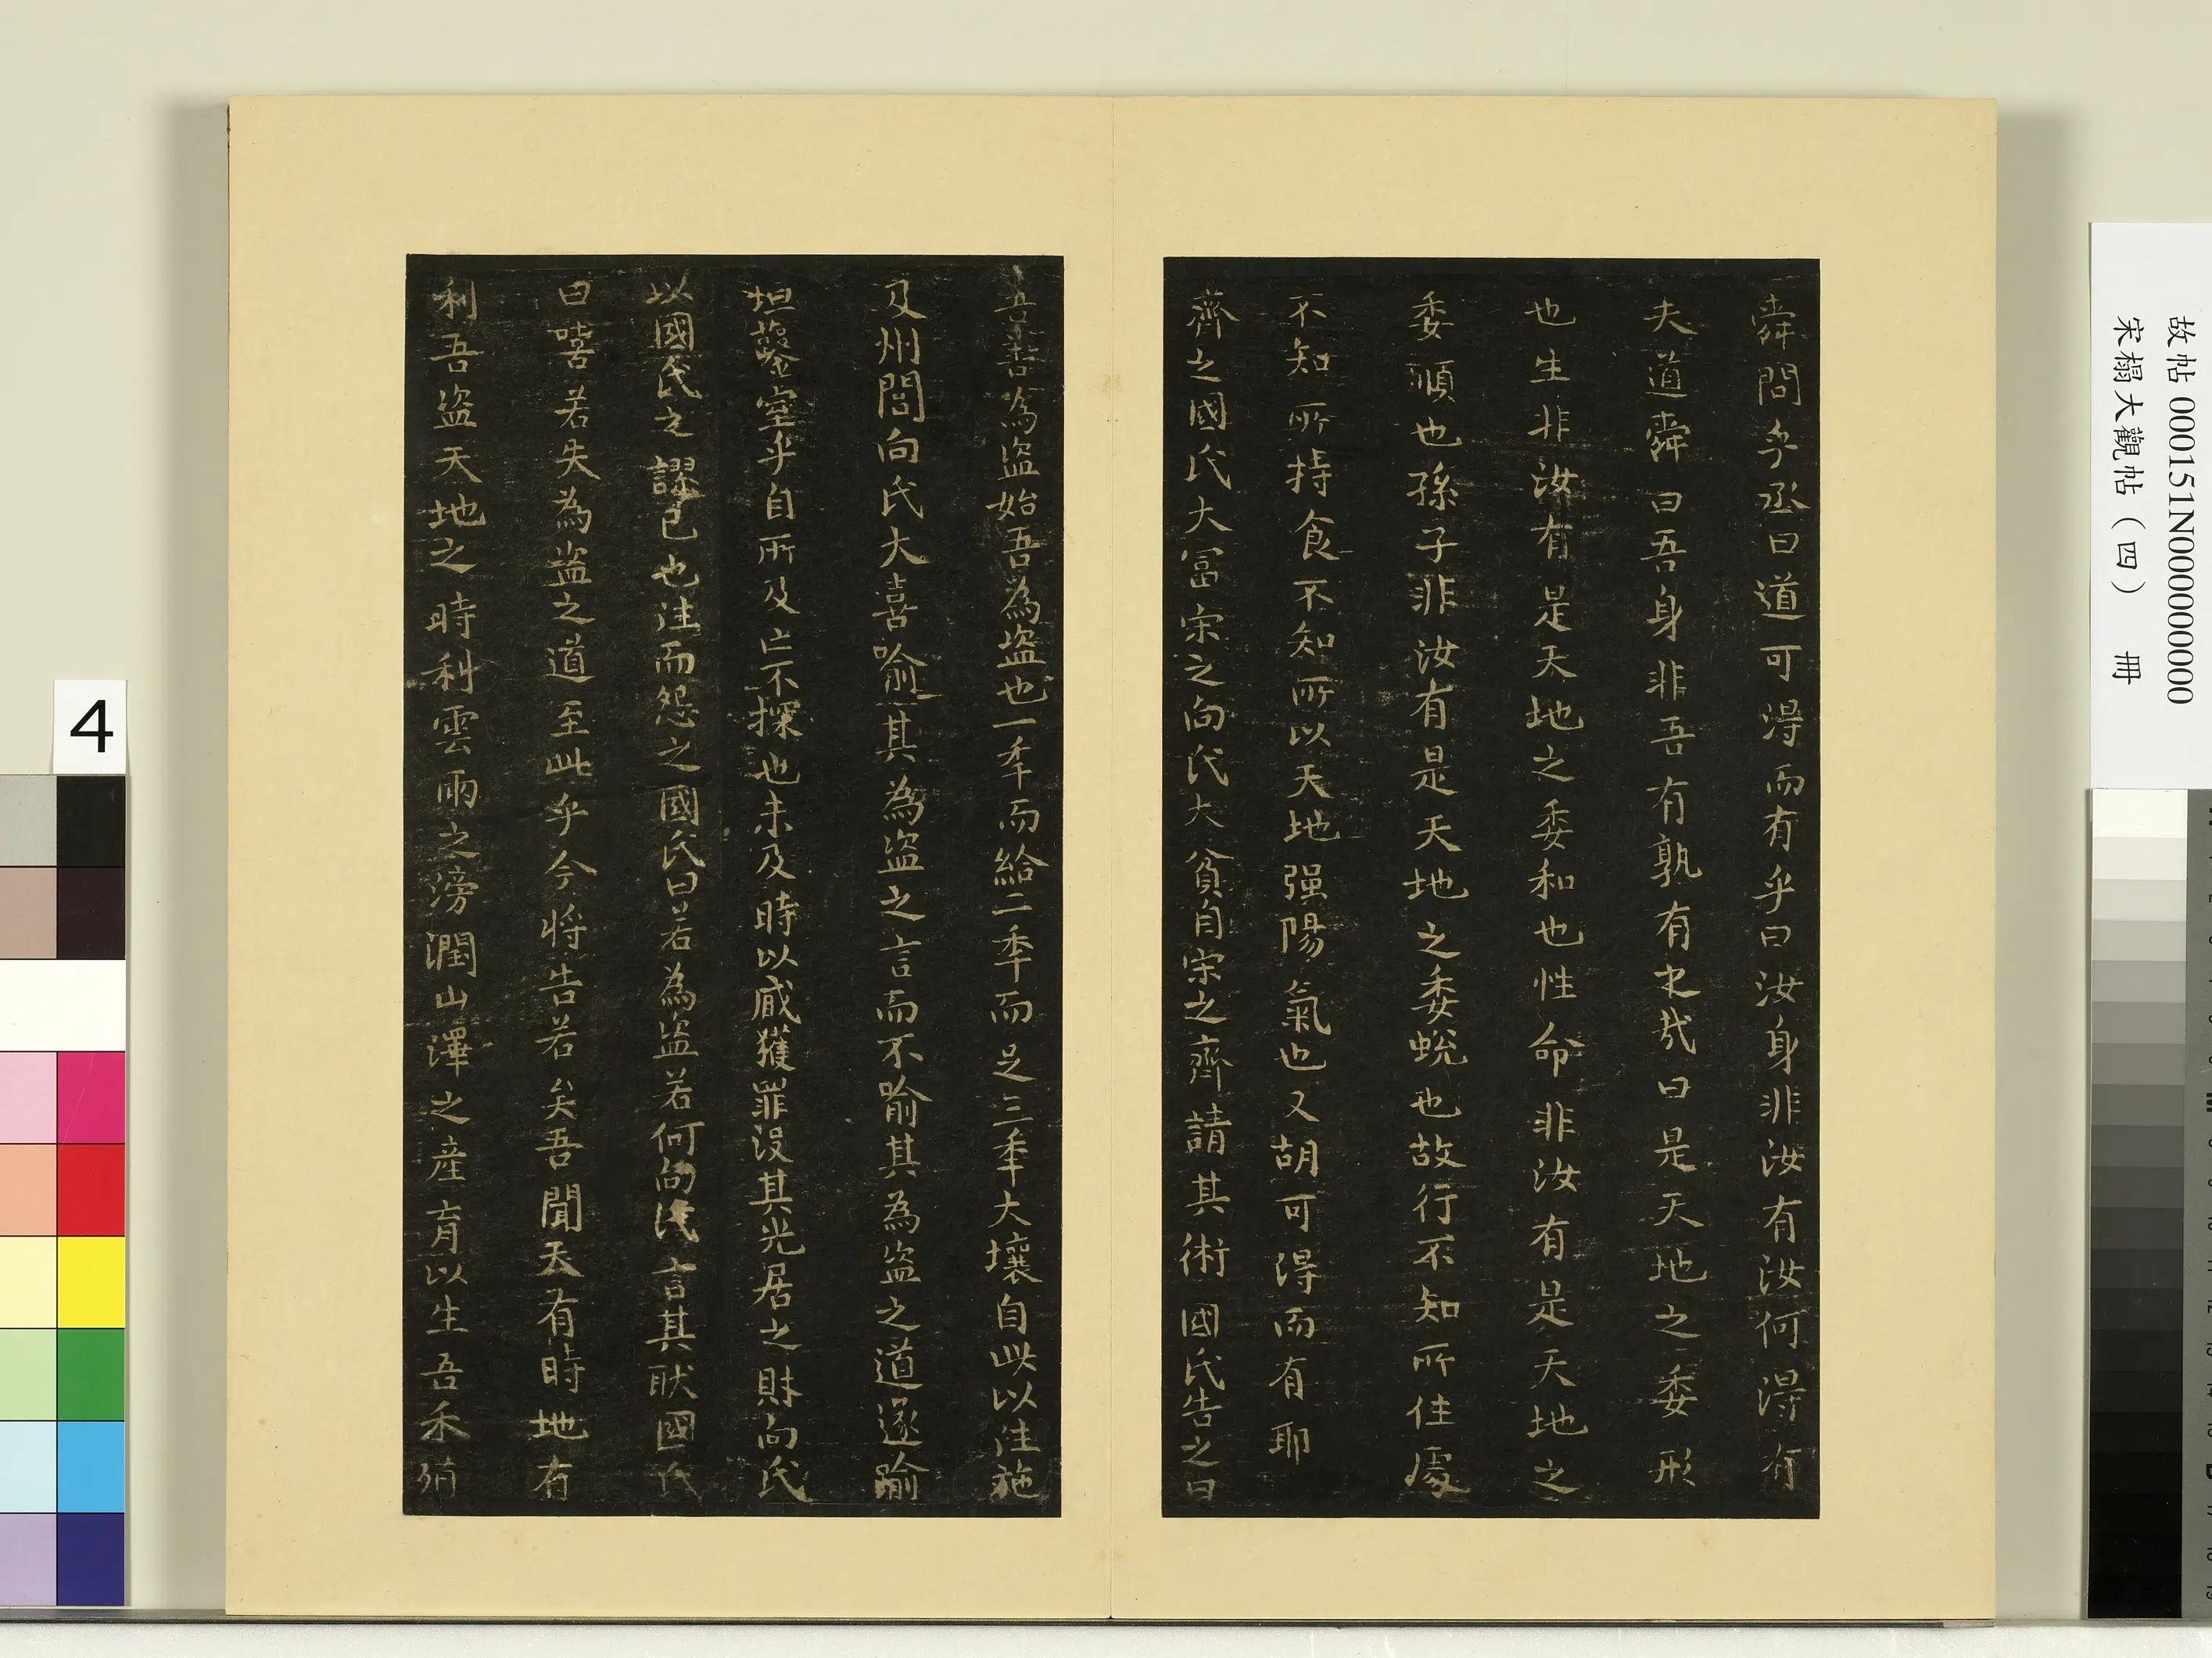 舜問乎丞曰道可得而有乎曰汝身非汝有汝何得有
夫道舜曰吾身非吾有孰有之㢤曰是天地之委形
也生非汝有是天地之委和也性命非汝有是天地之
委順也孫子非汝有是天地之委蛻也故行不知所住處
不知所持食不知所以天地强陽氣也又胡可得而有耶
齊之國氏大冨宋之向氏大貧自宋之齊請其術國氏告之曰
吾善為盗始吾為盗也一年而給二年而足三年大壤自此以往施
及州閭向氏大喜喻其為盗之言而不喻其為盗之道遂踰
垣鑿室乎自所及亡不探也未及時以臧獲罪没其先居之財向氏
以國氏之謬已也往而怨之國氏曰若為盗若何向氏言其狀國氏
曰嘻若失為盗之道至此乎今將告若矣吾聞天有時地有
利吾盗天地之時利雲雨之滂潤山澤之産育以生吾禾殖
故帖 000151N000000000
宋榻大觀帖（四） 冊
4